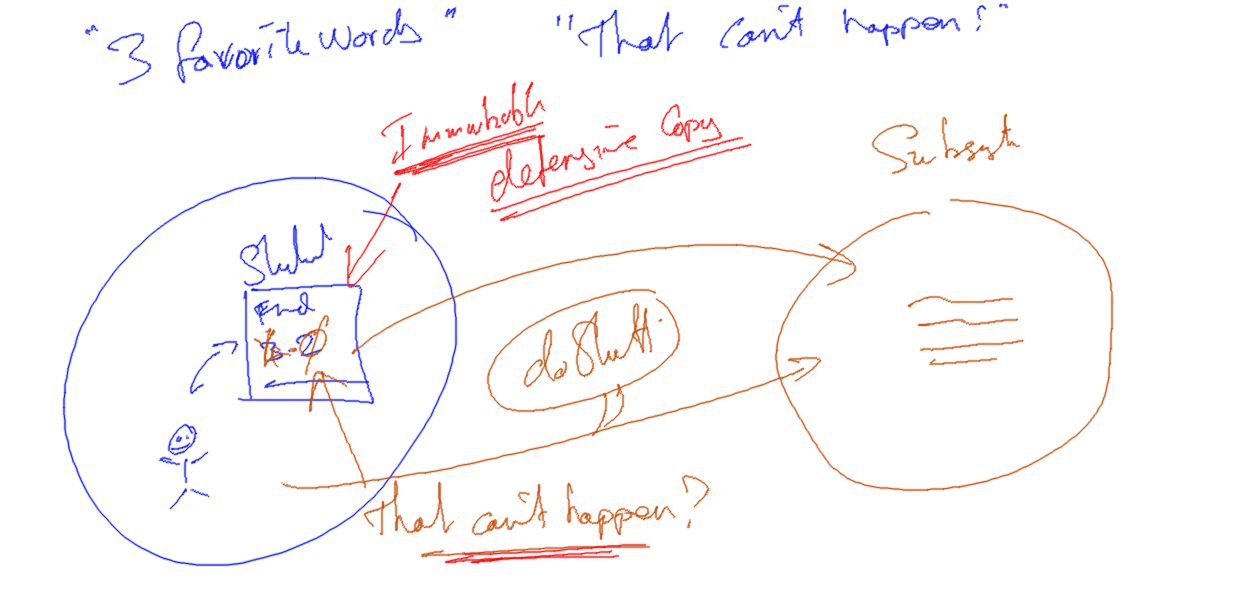 "3 favorite words" "That can't happen!"
Immutable
defensive Copy
Subsyst
Fred
doStuff
That can't happen?